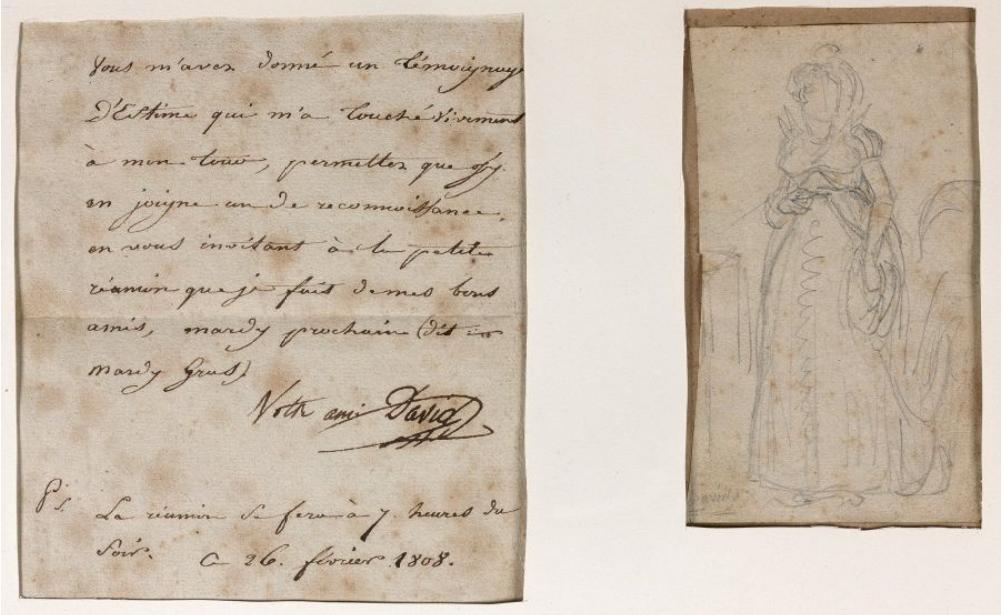 Vous m'avez donné un témoignage
D'Estime qui m'a touché vivement
à mon tour, permettez que j'y
en joigne un de reconnoissance,
en vous invitant à la petite
réunion que je fait de mes bons
amis, mardy prochain (dit
mardy Gras)
Votre ami David
P.S. La réunion se fera à 7 heures du
Soir.
Ce 26. février 1808.
David